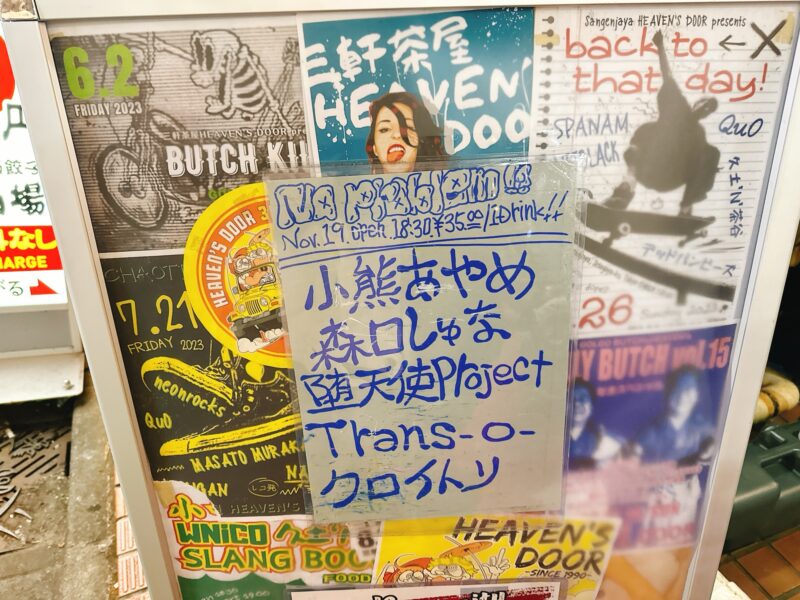 6.2
FRIDAY 2023
BUTCH
三軒茶屋
HEAVEN'S
DOO
Sangenjaya HEAVEN'S DOOR presents
back to ← X
that day!
SPANAM
QuO
LACK
久土'N'茶谷
デッドバンビーズ
26
No Problem!!
Nov. 19. open 18:30 ¥35.00/1Drink!!
小熊あやめ
森口しゅな
堕天使Project
Trans-o-
クロイトリ
HEAVEN'S DOOR
CHAOT
7.21
FRIDAY 2023
neonrocks
QuO
MASATO MURAKA
レコ発
HEAVEN'S
BUTCH vol.15
WNiCO
SLANG BOO
FOOD
HEAVEN'S
DOOR
-SINCE 1990-
円
餃子
場
なし
CHARGE
がる